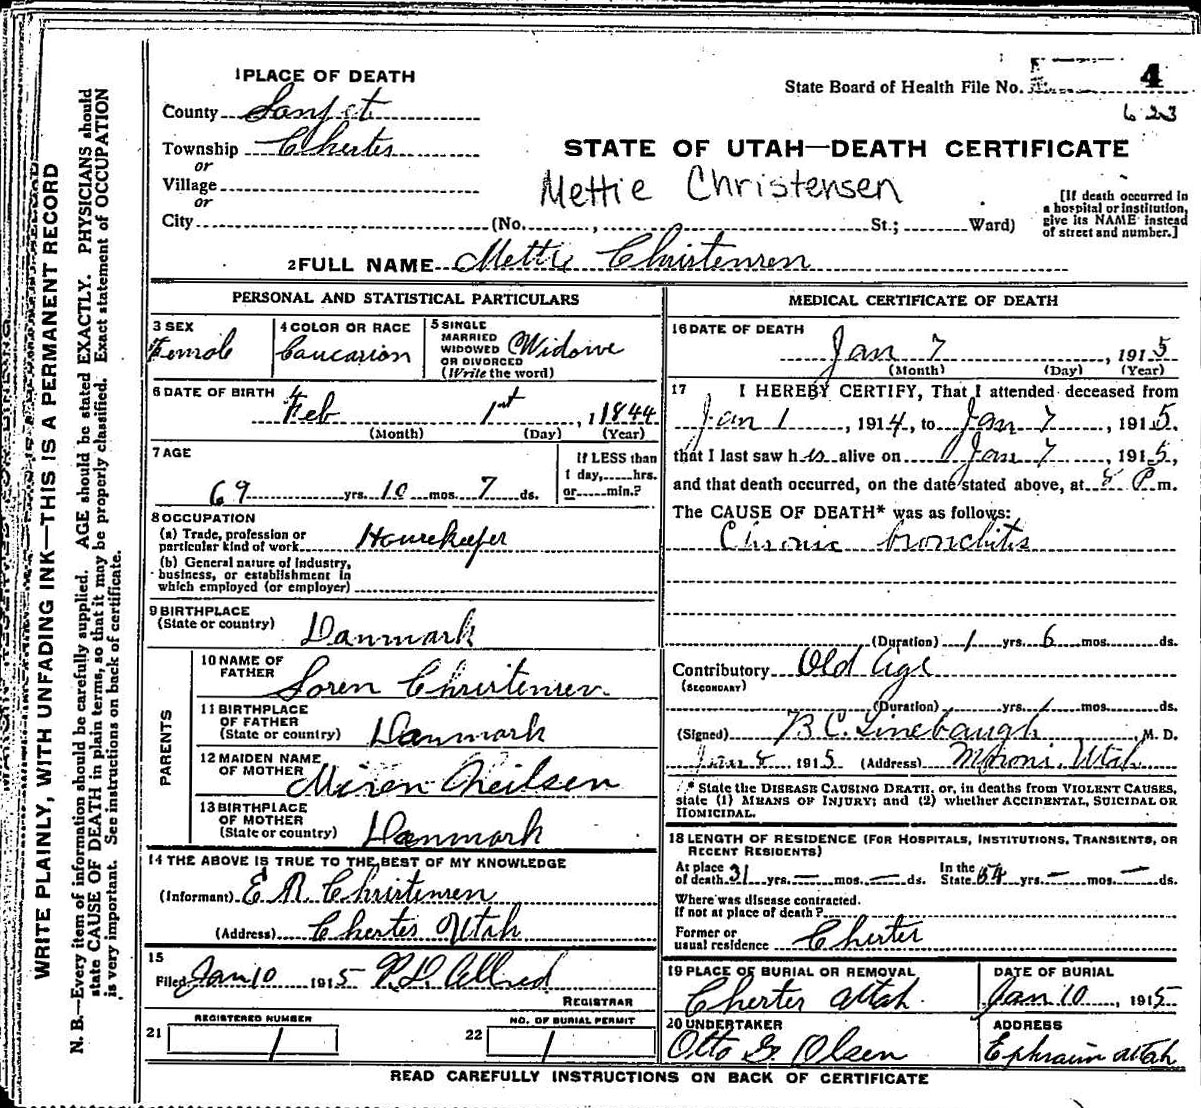 1 PLACE OF DEATH
County Sanpete
Township Chester
or
Village
or
City (No. , St.; Ward)
State Board of Health File No. 4
623
STATE OF UTAH—DEATH CERTIFICATE
Mettie Christensen
[If death occurred in
a hospital or institution,
give its NAME instead
of street and number.]
2 FULL NAME Mettie Christensen
PERSONAL AND STATISTICAL PARTICULARS
3 SEX
Female
4 COLOR OR RACE
Caucasion
5 SINGLE
MARRIED
WIDOWED
OR DIVORCED
(Write the word)
Widow
6 DATE OF BIRTH
Feb 1st , 1844
(Month) (Day) (Year)
7 AGE
69 yrs. 10 mos. 7 ds.
If LESS than
1 day, hrs.
or min.?
8 OCCUPATION
(a) Trade, profession or
particular kind of work Housekeeper
(b) General nature of Industry,
business, or establishment in
which employed (or employer)
9 BIRTHPLACE
(State or country) Danmark
PARENTS
10 NAME OF
FATHER Soren Christensen
11 BIRTHPLACE
OF FATHER
(State or country) Danmark
12 MAIDEN NAME
OF MOTHER Miren Neilsen
13 BIRTHPLACE
OF MOTHER
(State or country) Danmark
14 THE ABOVE IS TRUE TO THE BEST OF MY KNOWLEDGE
(Informant) E R Christensen
(Address) Chester Utah
15
Filed Jan 10 1915 P. D. Allred
REGISTRAR
21 REGISTERED NUMBER
1
22 NO. OF BURIAL PERMIT
1
MEDICAL CERTIFICATE OF DEATH
16 DATE OF DEATH
Jan 7 , 1915
(Month) (Day) (Year)
17 I HEREBY CERTIFY, That I attended deceased from
Jan 1 , 1914, to Jan 7 , 1915.
that I last saw h is alive on Jan 7 , 1915,
and that death occurred, on the date stated above, at 8 P.m.
The CAUSE OF DEATH* was as follows:
Chronic bronchitis
(Duration) 1 yrs. 6 mos. ds.
Contributory Old Age
(SECONDARY)
(Duration) yrs. mos. ds.
(Signed) B. C. Linebaugh, M. D.
Jan 8, 1915 (Address) Moroni, Utah
* State the DISEASE CAUSING DEATH, or, in deaths from VIOLENT CAUSES,
state (1) MEANS OF INJURY; and (2) whether ACCIDENTAL, SUICIDAL OR
HOMICIDAL.
18 LENGTH OF RESIDENCE (FOR HOSPITALS, INSTITUTIONS, TRANSIENTS, OR
RECENT RESIDENTS)
At place of death 31 yrs. — mos. — ds. In the State 54 yrs. — mos. — ds.
Where was disease contracted.
If not at place of death?
Former or
usual residence Chester
19 PLACE OF BURIAL OR REMOVAL
Chester Utah.
DATE OF BURIAL
Jan 10 , 1915
20 UNDERTAKER
Otto G. Olsen
ADDRESS
Ephraim Utah
READ CAREFULLY INSTRUCTIONS ON BACK OF CERTIFICATE
WRITE PLAINLY, WITH UNFADING INK—THIS IS A PERMANENT RECORD
N. B.—Every item of information should be carefully supplied. AGE should be stated EXACTLY. PHYSICIANS should
state CAUSE OF DEATH in plain terms, so that it may be properly classified. Exact statement of OCCUPATION
is very important. See instructions on back of certificate.